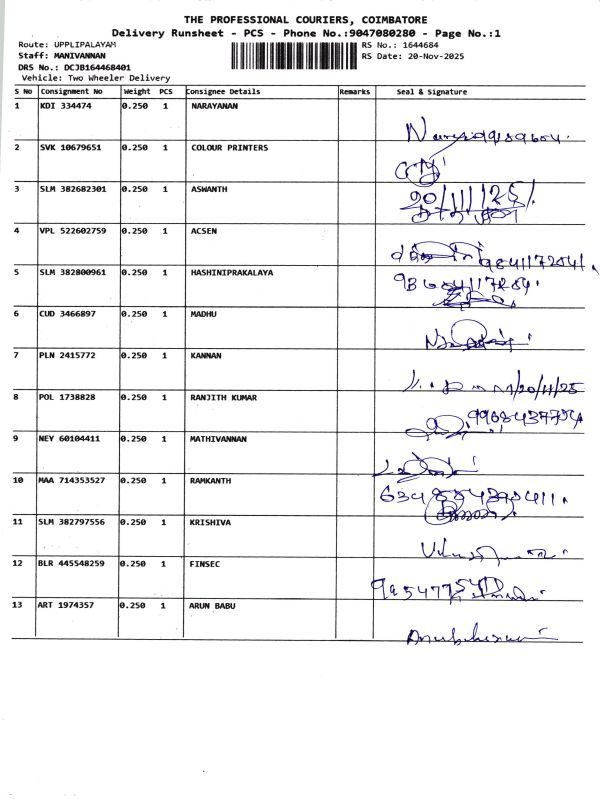 THE PROFESSIONAL COURIERS, COIMBATORE
Delivery Runsheet - PCS - Phone No.:9047080280 - Page No.:1
Route: UPPLIPALAYAM RS No.: 1644684
Staff: MANIVANNAN RS Date: 20-Nov-2025
DRS No.: DCJB164468401
Vehicle: Two Wheeler Delivery
S No Consignment No Weight PCS Consignee Details Remarks Seal & Signature
1 KDI 334474 0.250 1 NARAYANAN
2 SVK 10679651 0.250 1 COLOUR PRINTERS
3 SLM 382682301 0.250 1 ASWANTH 20/11/25
4 VPL 522602759 0.250 1 ACSEN
5 SLM 382800961 0.250 1 HASHINIPRAKALAYA
6 CUD 3466897 0.250 1 MADHU
7 PLN 2415772 0.250 1 KANNAN 20/11/25
8 POL 1738828 0.250 1 RANJITH KUMAR
9 NEY 60104411 0.250 1 MATHIVANNAN
10 MAA 714353527 0.250 1 RAMKANTH
11 SLM 382797556 0.250 1 KRISHIVA
12 BLR 445548259 0.250 1 FINSEC
13 ART 1974357 0.250 1 ARUN BABU